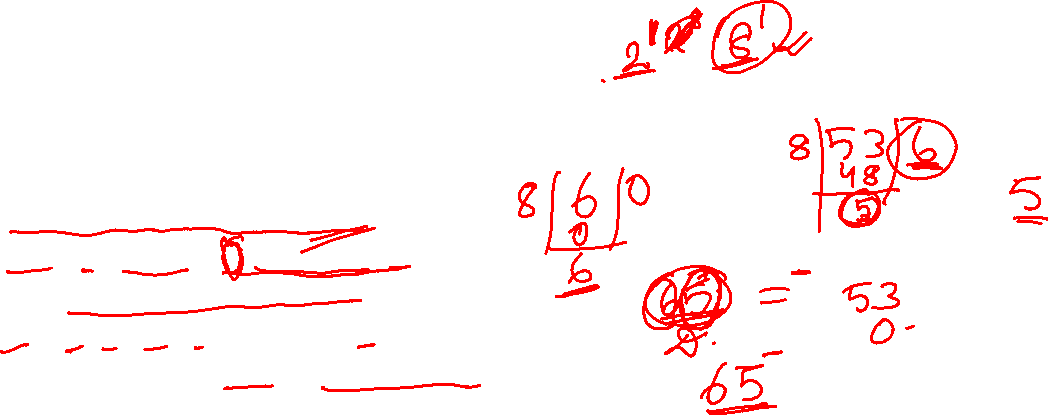 2" 6'
8 | 53 | 6
48
5
5
8 | 6 | 0
0
6
=
53
0
65